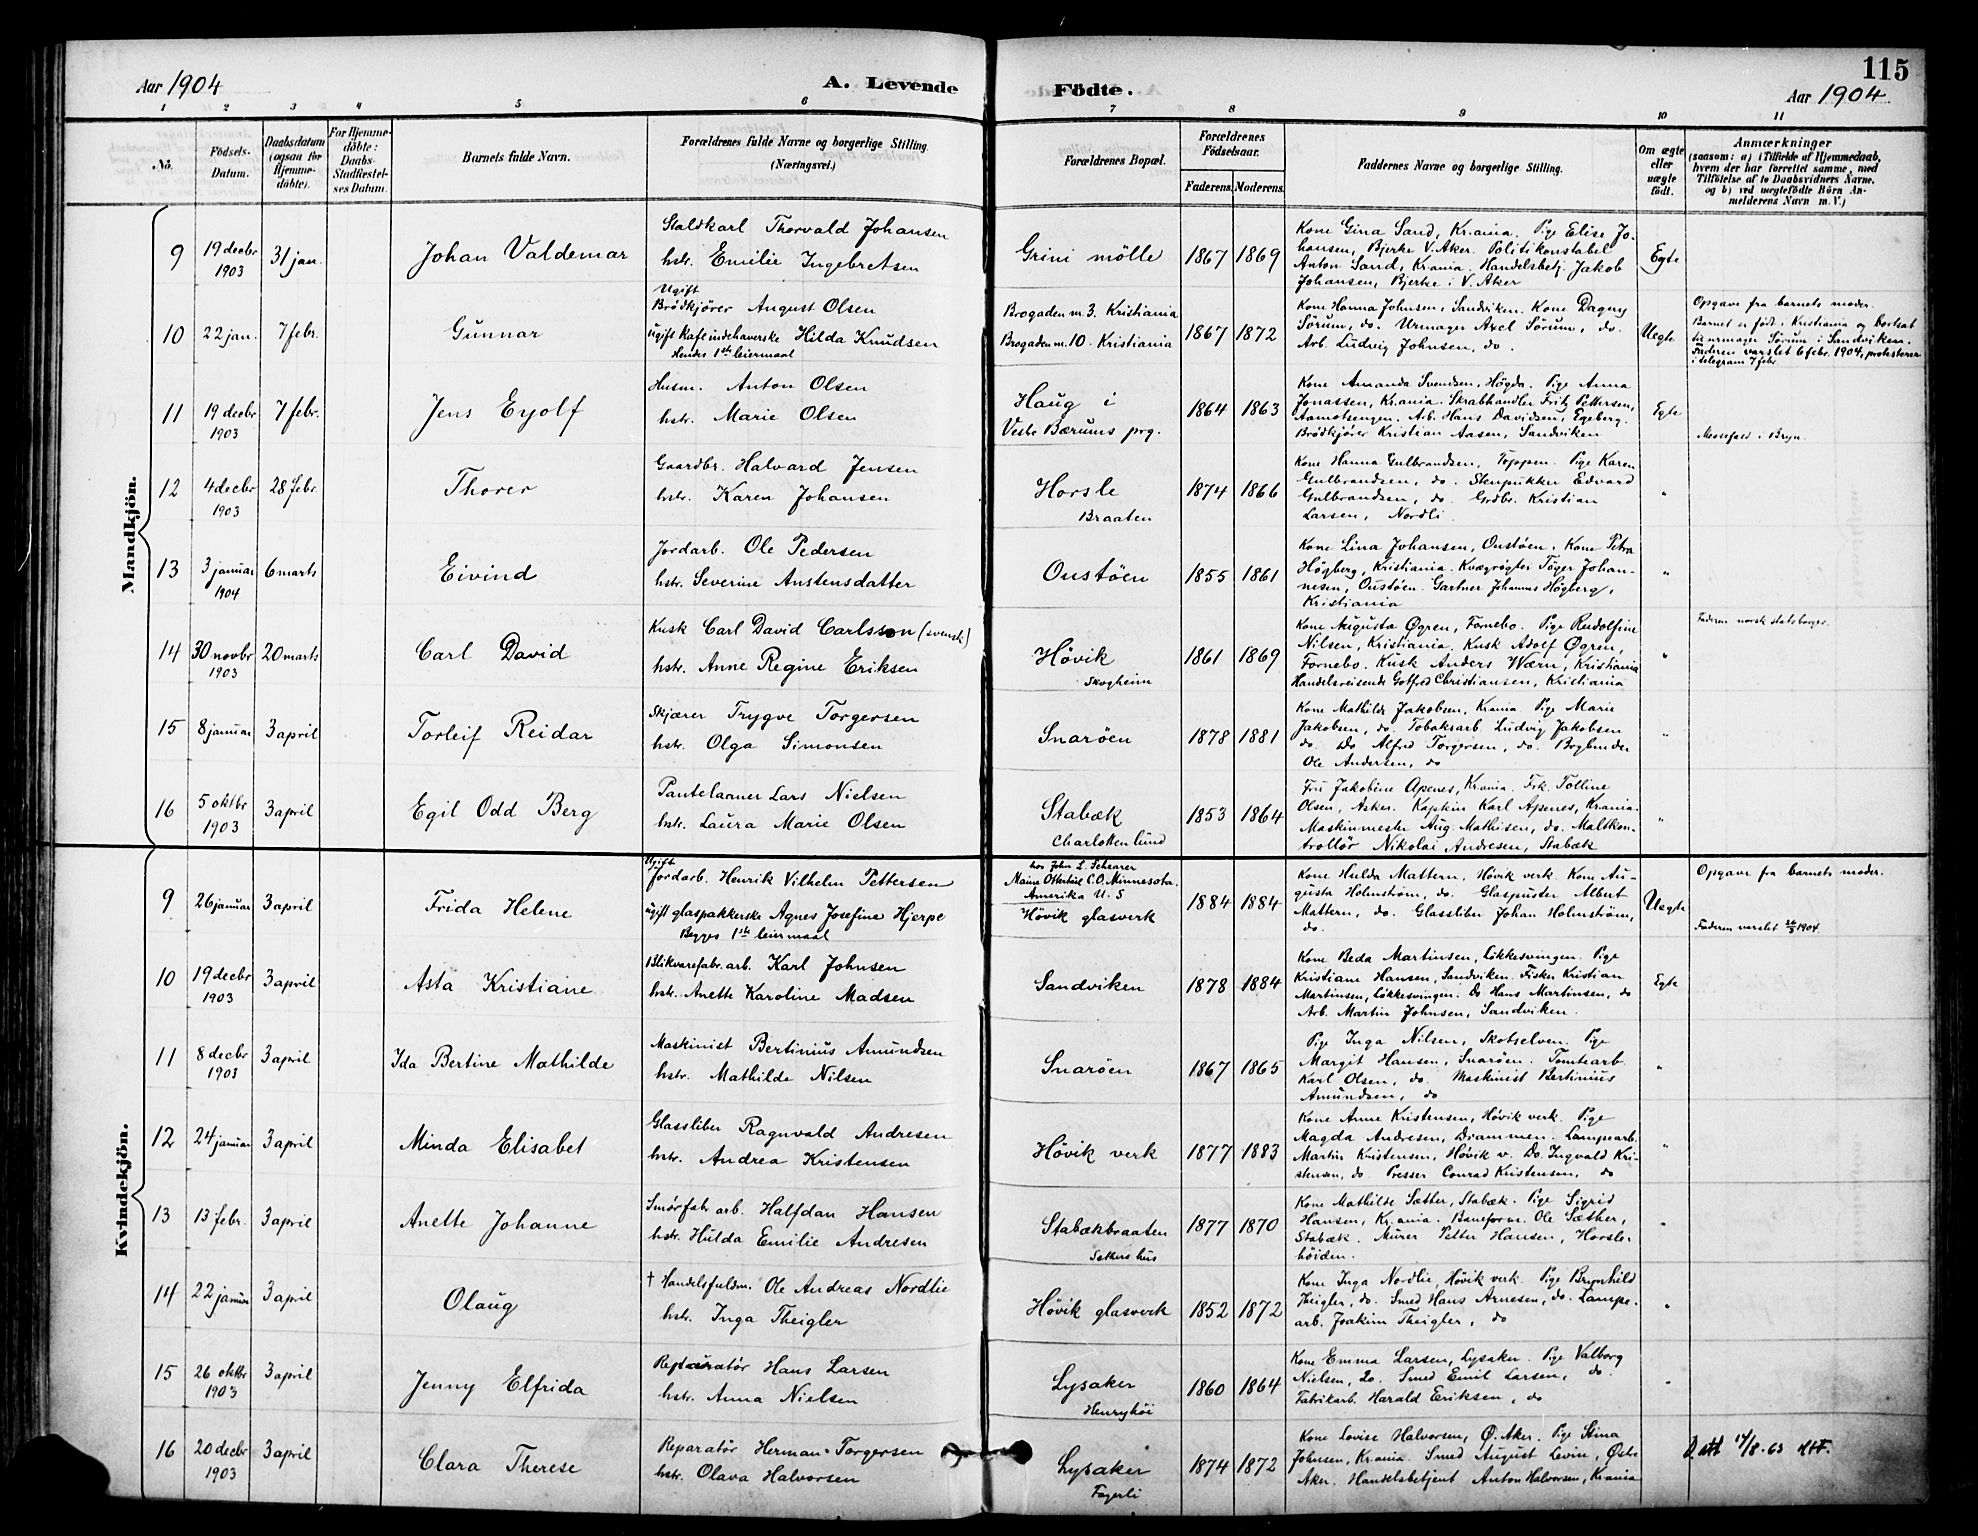 115
Aar 1904
A. Levende
Födte.
Aar 1904
1 2 3 4 5 6 7 8 9 10 11
No.
Födsels-
Datum.
Daabsdatum
(ogsaa for
Hjemme-
døbte).
For Hjemme-
døbte:
Daabs-
Stadfæstel-
ses Datum.
Barnets fulde Navn.
Forældrenes fulde Navne og borgerlige Stilling.
(Næringsvei.)
Forældrenes Bopæl.
Forældrenes
Födselsaar.
Faderens.
Moderens.
Faddernes Navne og borgerlige Stilling.
Om ægte
eller
uægte
født.
Anmærkninger
(saasom: a) i Tilfælde af Hjemmedaab,
hvem der har forrettet samme, med
Tilföielse af to Daabsvidners Navne,
og b) ved uægtefödte Börn An-
melderens Navn m. V.)
Mandkjön.
9
19 decbr
1903
31 jan.
Johan Valdemar
Staldkarl Thorvald Johansen
hstr. Emilie Ingebretsen
Grini mölle
1867
1869
Kone Gina Sand, Kr.ania. Pige Elise Jo-
hansen, Bjerke V. Aker. Politikonstabel
Anton Sand, Kr.ania. Handelsbetj. Jakob
Johansen, Bjerke i V. Aker
Egte
10
22 jan.
7 febr.
Gunnar
Ugift
Brödkjörer August Olsen
ugift kafeindehaverske Hilda Knudsen
Hendes 1ste leiermaal
Brogaden nr. 3. Kristiania
Brogaden nr. 10. Kristiania
1867
1872
Kone Hanna Johnsen, Sandviken. Kone Dagny
Sörum, do. Urmager Axel Sörum, do.
Arb. Ludvig Johnsen, do.
Uegte
Opgave fra barnets moder.
Barnet er født i Kristiania og bortsat
til urmager Sörum i Sandviken.
Faderen varslet 6 febr. 1904, protesterer
i telegram 7 febr.
11
19 decbr
1903
7 febr.
Jens Eyolf
Husm. Anton Olsen
hstr. Marie Olsen
Haug i
Vestr. Bærums prg.
1864
1863
Kone Amanda Svendsen, Högda. Pige Anna
Jonassen, Kr.ania. Skrabhandler Fritz Pettersen,
Aamotsengen. Arb. Hans Davidsen, Egeberg.
Brödkjörer Kristian Aasen, Sandviken
Egte
Messefald i Bryn.
12
4 decbr
1903
28 febr.
Thorer
Gaardbr. Halvard Jensen
hstr. Karen Johansen
Horsle
Braaten
1874
1866
Kone Hanna Gulbrandsen, Toppen. Pige Karen
Gulbrandsen, do. Stenpukker Edvard
Gulbrandsen, do. Grdbr. Kristian
Larsen, Nordli.
"
13
3 januar
1904
6 marts
Eivind
Jordarb. Ole Pedersen
hstr. Severine Anstensdatter
Oustöen
1855
1861
Kone Lina Johansen, Oustöen. Kone Petra
Högberg, Kristiania. Kvægrögter Töger Johan-
nesen, Oustöen. Gartner Johannes Högberg,
Kristiania
"
14
30 novbr
1903
20 marts
Carl David
Kusk Carl David Carlsson (svensk)
hstr. Anne Regine Eriksen
Hövik
Skogheim
1861
1869
Kone Augusta Øgren, Fornebo. Pige Rudolfine
Nilsen, Kristiania. Kusk Adolf Øgren,
Fornebo. Kusk Anders Wærn, Kristiania
Handelsreisende Gotfred Christiansen, Kristiania
"
Faderen norsk statsborger.
15
8 januar
3 april
Torleif Reidar
Skjærer Trygve Torgersen
hstr. Olga Simonsen
Snaröen
1878
1881
Kone Mathilde Jakobsen, Kr.ania. Pige Marie
Jakobsen, do. Tobaksarb. Ludvig Jakobsen
do. Do Alfred Torgersen, do. Bogbinder
Ole Andersen, do
"
16
5 oktbr
1903
3 april
Egil Odd Berg
Pantelaaner Lars Nielsen
hstr. Laura Marie Olsen
Stabæk
Charlottenlund
1853
1864
Fru Jakobine Apenes, Kr.ania. Frk. Tolline
Olsen, Asker. Kaptein Karl Apenes, Kr.ania.
Maskinmester Aug. Mathisen, do. Maltkon-
trollör Nikolai Andresen, Stabæk
"
Kvindekjön.
9
26 januar
3 april
Frida Helene
Ugift
Jordarb. Henrik Vilhelm Pettersen
ugift glaspakkerske Agnes Josefine Hjerpe
Begges 1ste leiermaal
hos John L. Schearer
Maine Ottertail C.O. Minnesota.
Amerika U. S
Hövik glasverk
1884
1884
Kone Hulda Mattern, Hövik verk. Kone Au-
gusta Holmström, do. Glaspuster Albert
Mattern, do. Glassliber Johan Holmström,
do.
Uegte
Opgave fra barnets moder.
Faderen varslet 1904.
10
19 decbr
1903
3 april
Asta Kristiane
Blikvarefabr. arb. Karl Johnsen
hstr. Anette Karoline Madsen
Sandviken
1878
1884
Kone Beda Martinsen, Lökkesvingen. Pige
Kristiane Hansen, Sandviken. Fisker Kristian
Martinsen, Lökkesvingen. Do Hans Martinsen, do
Arb. Martin Johnsen, Sandviken.
Egte
11
8 decbr
1903
3 april
Ida Bertine Mathilde
Maskinist Bertinius Amundsen
hstr. Mathilde Nilsen
Snaröen
1867
1865
Pige Inga Nilsen, Skotselven. Pige
Margit Hansen, Snaröen. Tomtearb.
Karl Olsen, do. Maskinist Bertinius
Amundsen, do
"
12
24 januar
3 april
Minda Elisabet
Glassliber Ragnvald Andresen
hstr. Andrea Kristensen
Hövik verk
1877
1883
Kone Anne Kristensen, Hövik verk. Pige
Magda Andresen, Drammen. Lampearb.
Martin Kristensen, Hövik v. Do. Ingvald Kri-
stensen, do Presser Conrad Kristensen, do
"
13
13 febr.
3 april
Anette Johanne
Smörfabr. arb. Halfdan Hansen
hstr. Hulda Emilie Andresen
Stabækbraaten
Sæthers hus
1877
1870
Kone Mathilde Sæther, Stabæk. Pige Sigrid
Hansen, Kr.ania. Baneform. Ole Sæther,
Stabæk. Murer Petter Hansen, Horsle-
höiden.
"
14
22 januar
3 april
Olaug
† Handelsfuldm. Ole Andreas Nordlie
hstr. Inga Theigler
Hövik glasverk
1852
1872
Kone Inga Nordlie, Hövik verk. Pige Brynhild
Theigler, do. Smed Hans Arnesen, do. Lampe-
arb. Joakim Theigler, do
"
15
26 oktbr
1903
3 april
Jenny Elfrida
Reparatör Hans Larsen
hstr. Anna Nielsen
Lysaker
Henryhöi
1860
1864
Kone Emma Larsen, Lysaker. Pige Valborg
Nielsen, do. Smed Emil Larsen, do.
Fabrikarb. Harald Eriksen, do
"
16
20 decbr
1903
3 april
Clara Therese
Reparatör Herman Torgersen
hstr. Olava Halvorsen
Lysaker
Fagerli
1874
1872
Kone Lovise Halvorsen, Ø. Aker. Pige Stina
Johnsen, Kr.ania. Smed August Levin, Östre
Aker. Handelsbetjent Anton Halvorsen, Kr.ania
17/8-63